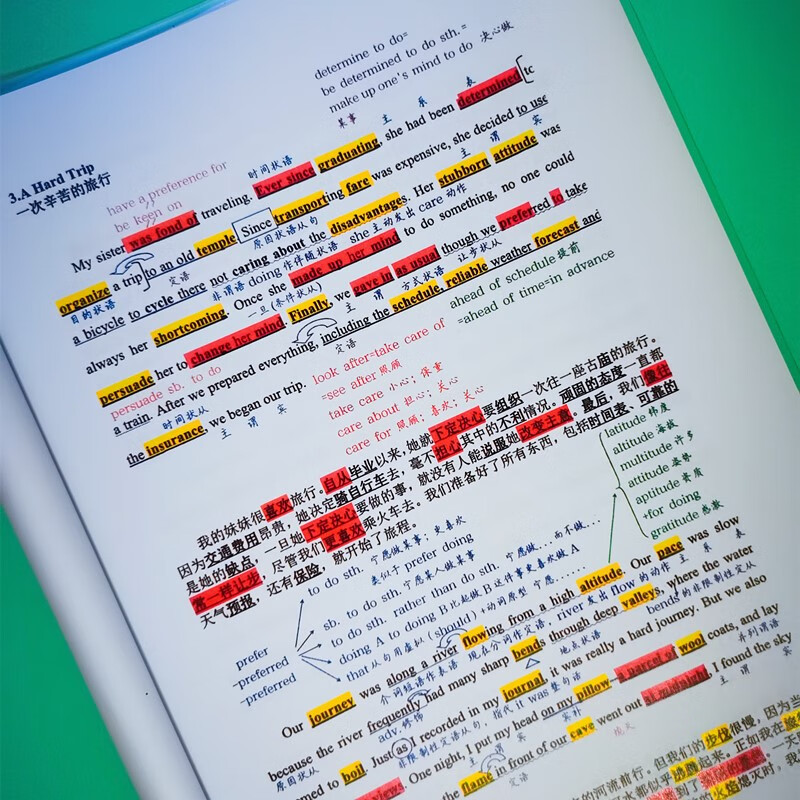 determine to do=
be determined to do sth.=
make up one's mind to do 决心做
3.A Hard Trip
一次辛苦的旅行
have a preference for
be keen on
时间状语
某事 主 系 表
My sister was fond of traveling. Ever since graduating, she had been determined to
organize a trip to an old temple. Since transporting fare was expensive, she decided to use
目的状语 定语 原因状语从句 主 谓 宾
a bicycle to cycle there not caring about the disadvantages. Her stubborn attitude was
非谓语 doing 作伴随状语 she 主动发出 care 动作
always her shortcoming. Once she made up her mind to do something, no one could
一旦(条件状从)
persuade her to change her mind. Finally, we gave in as usual though we preferred to take
persuade sb. to do 主 谓 方式状语 让步状从
a train. After we prepared everything, including the schedule, reliable weather forecast and
时间状从 定语
the insurance, we began our trip.
主 谓 宾
ahead of schedule 提前
=ahead of time=in advance
look after=take care of
=see after 照顾
take care 小心; 保重
care about 担心; 关心
care for 照顾; 喜欢; 关心
我的妹妹很喜欢旅行。自从毕业以来,她就下定决心要组织一次往一座古庙的旅行。
因为交通费用昂贵,她决定骑自行车去,毫不担心其中的不利情况。顽固的态度一直都
是她的缺点,一旦她下定决心要做的事,就没有人能说服她改变主意。最后,我们像往
常一样让步,尽管我们更喜欢乘火车去。我们准备好了所有东西,包括时间表、可靠的
天气预报,还有保险,就开始了旅程。
latitude 纬度
altitude 海拔
multitude 许多
attitude 姿势
aptitude 资质
+for doing
gratitude 感激
prefer
-preferred
-preferred
to do sth. 宁愿做某事; 更喜欢
类似于 prefer doing
sb. to do sth. 宁愿某人做某事
to do sth. rather than do sth. 宁愿做...而不做...
doing A to doing B 比起做 B 这件事更喜欢做 A
that 从句用虚拟 (should) +动词原型 宁愿......
Our journey was along a river flowing from a high altitude. Our pace was slow
介词短语作表语 现在分词作定语, river 发出 flow 的动作 主 系 表
because the river frequently had many sharp bends through deep valleys, where the water
原因状从 adv.修饰 地点状语 bends 的非限制性定从
seemed to boil. Just as I recorded in my journal, it was really a hard journey. But we also
非限制性定语从句, 指代 it was 整句话 并列谓语
views. One night, I put my head on my pillow—a parcel of wool coats, and lay
主 谓 宾 宾补
the flame in front of our cave went out at midnight, I found the sky
定语 熄灭 主 谓 宾